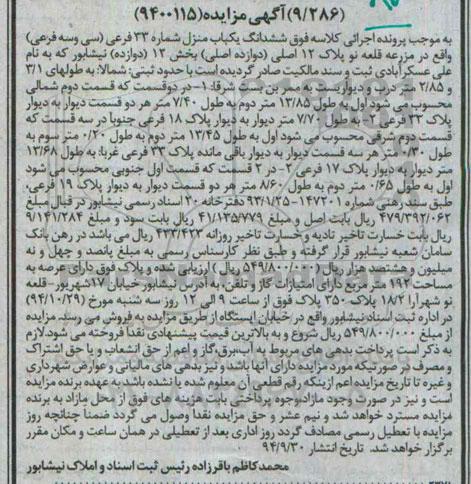 (۹/۲۸۶)آگهی مزایده(۹۴۰۰۱۱۵)
به موجب پرونده اجرائی کلاسه فوق ششدانگ یکباب منزل شماره ۳۳ فرعی (سی وسه فرعی)
واقع در مزرعه قلعه نو پلاک ۱۲ اصلی (دوازده اصلی) بخش ۱۲ (دوازده) نیشابور که به نام
علی عسکرآبادی ثبت و سند مالکیت صادر گردیده است با حدود ثبتی: شمالا: به طولهای ۳/۱
و ۲/۸۵ متر درب و دیواریست به ممر بن بست شرقا: ۱- در دوقسمت که قسمت دوم شمالی
محسوب می شود اول به طول ۱۳/۸۵ متر دوم به طول ۷/۴۰ متر هر دو قسمت دیوار به دیوار
پلاک ۳۳ فرعی ۲- به طول ۷/۷۰ متر دیوار به دیوار پلاک ۱۸ فرعی جنوبا در سه قسمت که
قسمت دوم شرقی محسوب می شود اول به طول ۱۳/۴۵ متر دوم به طول ۰/۲۰ متر سوم به
طول ۰/۳۰ متر هر سه قسمت دیوار به دیوار باقی مانده پلاک ۳۳ فرعی غربا: به طول ۱۳/۶۸
متر دیوار به دیوار پلاک ۱۷ فرعی ۲- در ۲ قسمت که قسمت اول جنوبی محسوب می شود
اول به طول ۰/۶۵ متر دوم به طول ۸/۶۰ متر هر دو قسمت دیوار به دیوار پلاک ۱۹ فرعی،
طبق سند رهنی شماره ۱۴۷۳۰۱-۹۳/۱/۲۵ دفترخانه ۲۰ اسناد رسمی نیشابور در قبال مبلغ
۴۷۹/۳۹۲/۰۶۲ ریال بابت اصل و مبلغ ۴۱/۱۳۵/۷۷۹ ریال بابت سود و مبلغ ۹/۱۴۱/۲۸۴
ریال بابت خسارت تاخیر تادیه و خسارت تاخیر روزانه ۴۳۳/۴۲۲ ریال می باشد در رهن بانک
سامان شعبه نیشابور قرار گرفته و طبق نظر کارشناس رسمی به مبلغ پانصد و چهل و نه
میلیون و هشتصد هزار ریال (۵۴۹/۸۰۰/۰۰۰ ریال) ارزیابی شده و پلاک فوق دارای عرصه به
مساحت ۱۹۲ متر مربع دارای امتیازات گاز و تلفن، به آدرس نیشابور خیابان ۱۷شهریور- قلعه
نو شهرآرا ۱۸/۲ پلاک ۳۵۰ پلاک فوق از ساعت ۹ الی ۱۲ روز سه شنبه مورخ (۹۴/۱۰/۲۹)
در اداره ثبت اسناد نیشابور واقع در خیابان ایستگاه از طریق مزایده به فروش می رسد. مزایده
از مبلغ ۵۴۹/۸۰۰/۰۰۰ ریال شروع و به بالاترین قیمت پیشنهادی نقدا فروخته می شود.لازم
به ذکر است پرداخت بدهی های مربوط به آب،برق،گاز و اعم از حق انشعاب و یا حق اشتراک
و مصرف در صورتیکه مورد مزایده دارای آنها باشد و نیز بدهی های مالیاتی و عوارض شهرداری
و غیره تا تاریخ مزایده اعم ازینکه رقم قطعی آن معلوم شده یا نشده باشد به عهده برنده مزایده
است و نیز در صورت وجود مازاد،وجوه پرداختی بابت هزینه های فوق از محل مازاد به برنده
مزایده مسترد خواهد شد و نیم عشر و حق مزایده نقدا وصول می گردد ضمنا چنانچه روز
مزایده با تعطیل رسمی مصادف گردد روز اداری بعد از تعطیلی در همان ساعت و مکان مقرر
برگزار خواهد شد. تاریخ انتشار ۹۴/۹/۳۰
محمدکاظم باقرزاده رئیس ثبت اسناد و املاک نیشابور